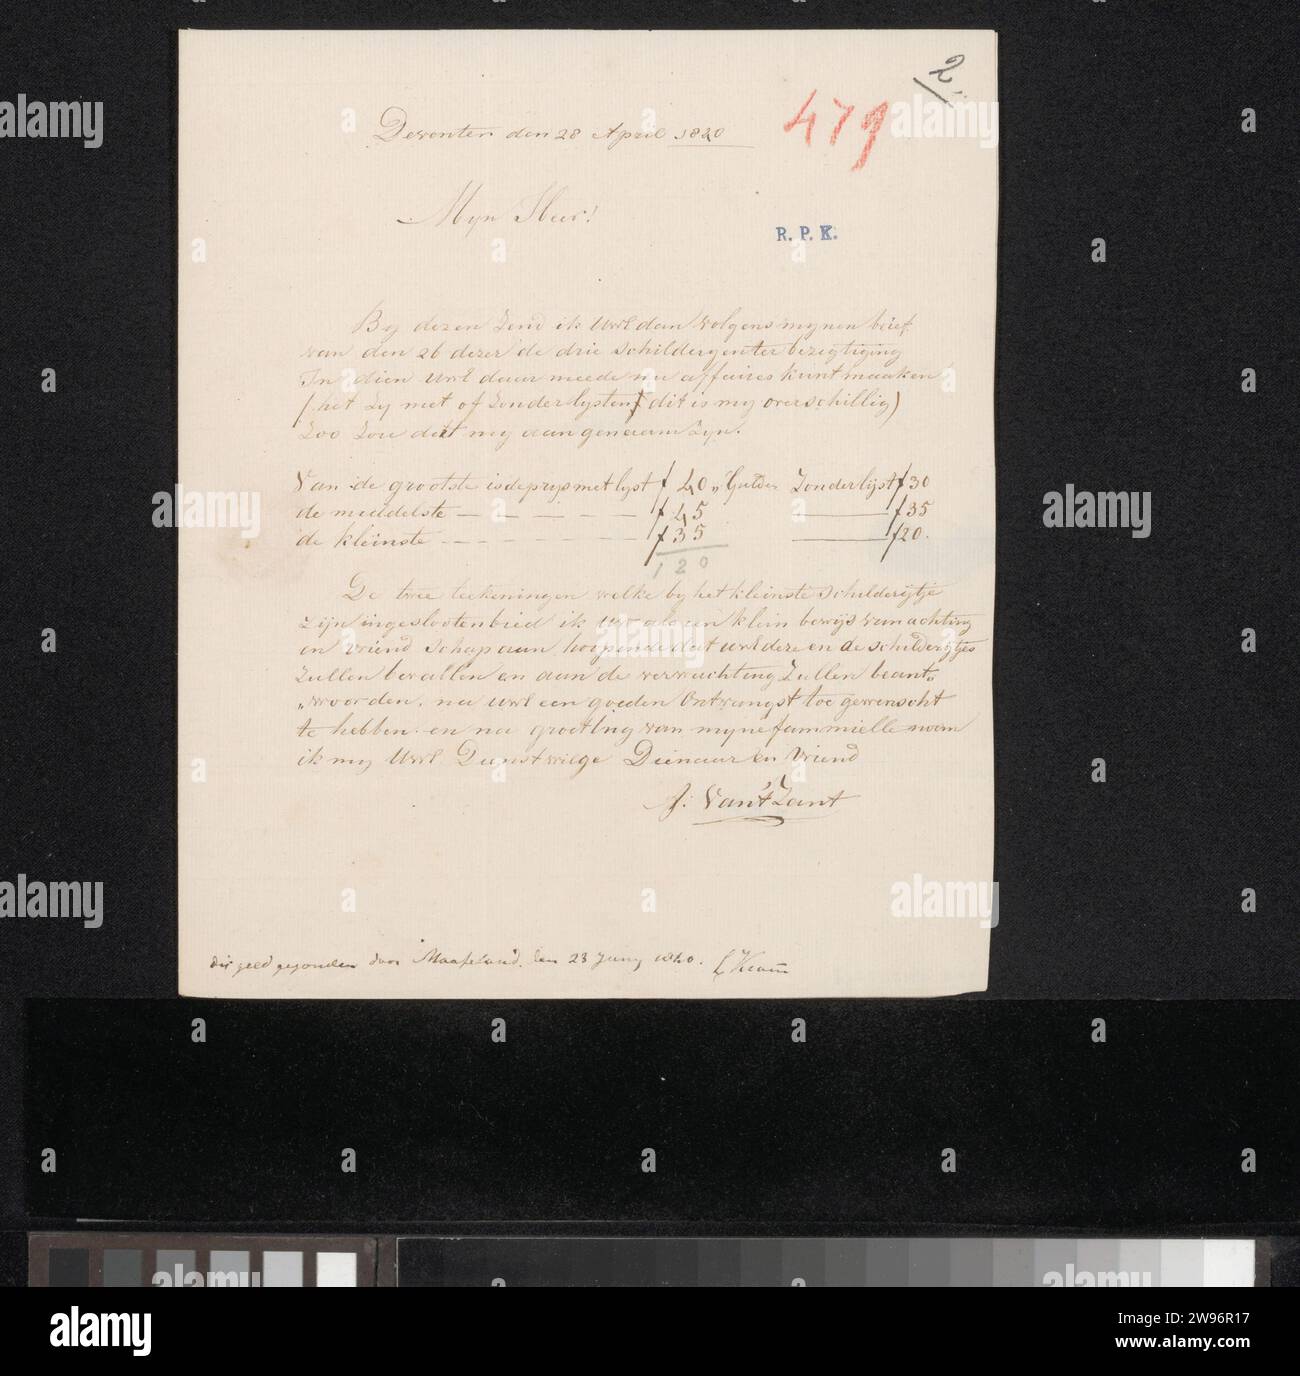 2
479
Deventer den 28 April 1820
Myn Heer!
R. P. K.
By dezen Zend ik UWE dan volgens mynen brief
van den 26 dezer de drie schildereyen ter bezigtiging
In dien UWE daar meede nu affaires kunt maaken
(het Zy met of Zonder lysten dit is my overschillig)
Zoo Zou dit my aangenaam Zyn.
Van de grootste is de prys met lyst f 40 „ Gulden Zonder lyst f 30
de middelste — — — — — f 45 ——— f 35
de kleinste — — — — — f 35 ——— f 20.
120
De twee teekeningen welke by het kleinste schilderijtje
Zijn ingeslooten bied ik UWE als een klein bewijs van achting
en vriend schap aan hoopende dat UWE deze en de schilderijtjes
Zullen bevallen en aan de verwachting Zullen beant„
„woorden. na UWE een goeden Ontvangst toe gewenscht
te hebben. en na groeting van myne fammielle noem
ik my UWE Dienstwilge Dienaar en Vriend
J: Van 't Zant
dit geld gezonden door Maaseland. den 23 Juny
alamy
2W96R17